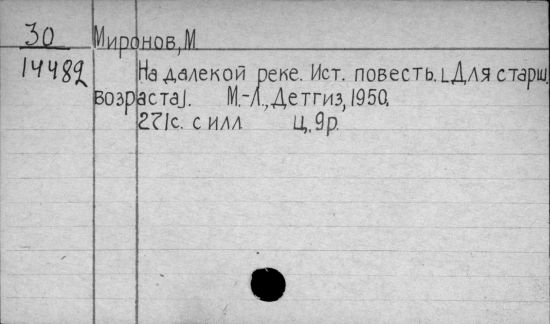 30
14482
Миронов, М.
На далекой реке. Ист. повесть. [Для старш.
возраста]. М.-Л., Детгиз, 1950.
271с. с илл Ц. 9р.